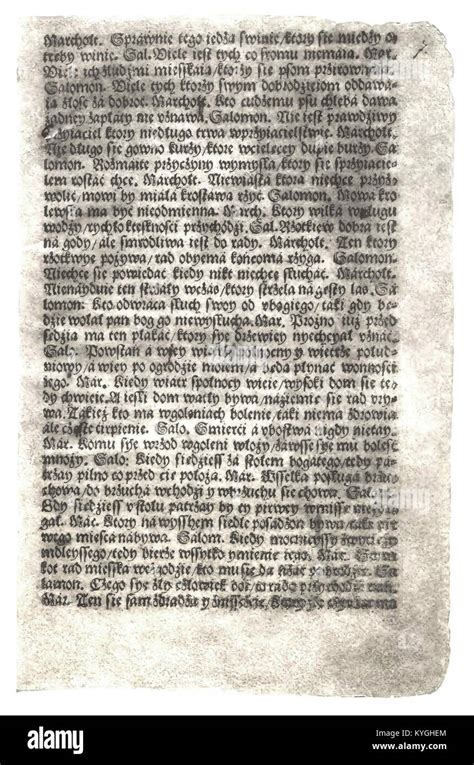 Marcholt. Sprawnie tego iedza swinie/ktory sie miedzy o
treby winie. Sal. Wiele iest tych co sromu niemaia. Mar.
Wiele ich zludzmi mieszkaia/ktorzy sie psom przirownaia
Salomon. Wiele tych ktorzy swym dobrodzieiom oddawa
ia zlosc za dobroc. Marcholt. Kto cudzemu psu chleba dawa
zadney zaplaty nie vznawa. Salomon. Nie iest prawdziwy
przyiaciel ktory niedlugo trwa wprzyiacielstwie. Marcholt.
Nie dlugo sie gowno kurzy/ktore wcielecey dupie burzy. Sa
lomon. Rozmaite przyczyny wymysla/ktory sie sprzyiacie
lem rostac chce. Marcholt. Niewiasta ktora niechce przyz
wolic/mowi by miala krostawa rzyc. Salomon. Mowa kro
lewska ma byc nieodmienna. March. Ktory wilka wplugu
wodzy/rychlo ktesknosci przychodzi. Sal. Rzotkiew dobra iest
na gody/ale smrodliwa iest do rady. Marcholt. Ten ktory
rzotkwye pozywa/rad obyema koncoma rzyga. Salomon.
Niechce sie powiedac kiedy nikt niechce sluchac. Marcholt.
Nienayduie ten strzaly wczas/ktory strzela na gesty las. Sa
lomon: Kto odwraca sluch swoy od vbogiego/taki gdy be
dzie wolal pan bog go niewyslucha. Mar. Prozno iuz przed
sedzia ma ten plakac/ktory sye drzewiey nyechcyal vznac.
Sal: Powstan a wsey wietrze polnocny y wietrze polud
niowy/a wiey po ogrodzie moiem/a beda plynac wonnosci
iego. Mar. Kiedy wiatr spolnocy wieie/wysoki dom sie te
dy chwieie. A iesli dom watly bywa/naziemie sie rad vry
wa. Takiez kto ma wgoleniach bolenie/taki niema zdrowia
ale czeste cirpienie. Salo. Smierci a vbostwa nigdy nietay.
Mar. Komu sye wrzod wgoleni wlozy/zawsse sye mu bolesc
mnozy. Salo: Kiedy siedziess za stolem bogatego/tedy pa
trzay pilno co przed cie poloza. Mar. Wsselka posluga brze
chowa/do brzucha wchodzi y wbrzuchu sie chowa. Sa
Gdy siedziess v stolu patrzay by en pirwey
gal. Mac. Ktory na wyssem siedle posadzon bywa/taki pir
wego miesca nabywa. Salom. Kiedy mocnieyssy zwyciezy
mdleyssego/tedy bierze wssytko ymienie iego. Mar.
kot rad mieszka wogrodzie/kto mu sie da
lamon. Czego sye zly czlowiek boi/to rado
Mar. Ten sie sam zdradza y